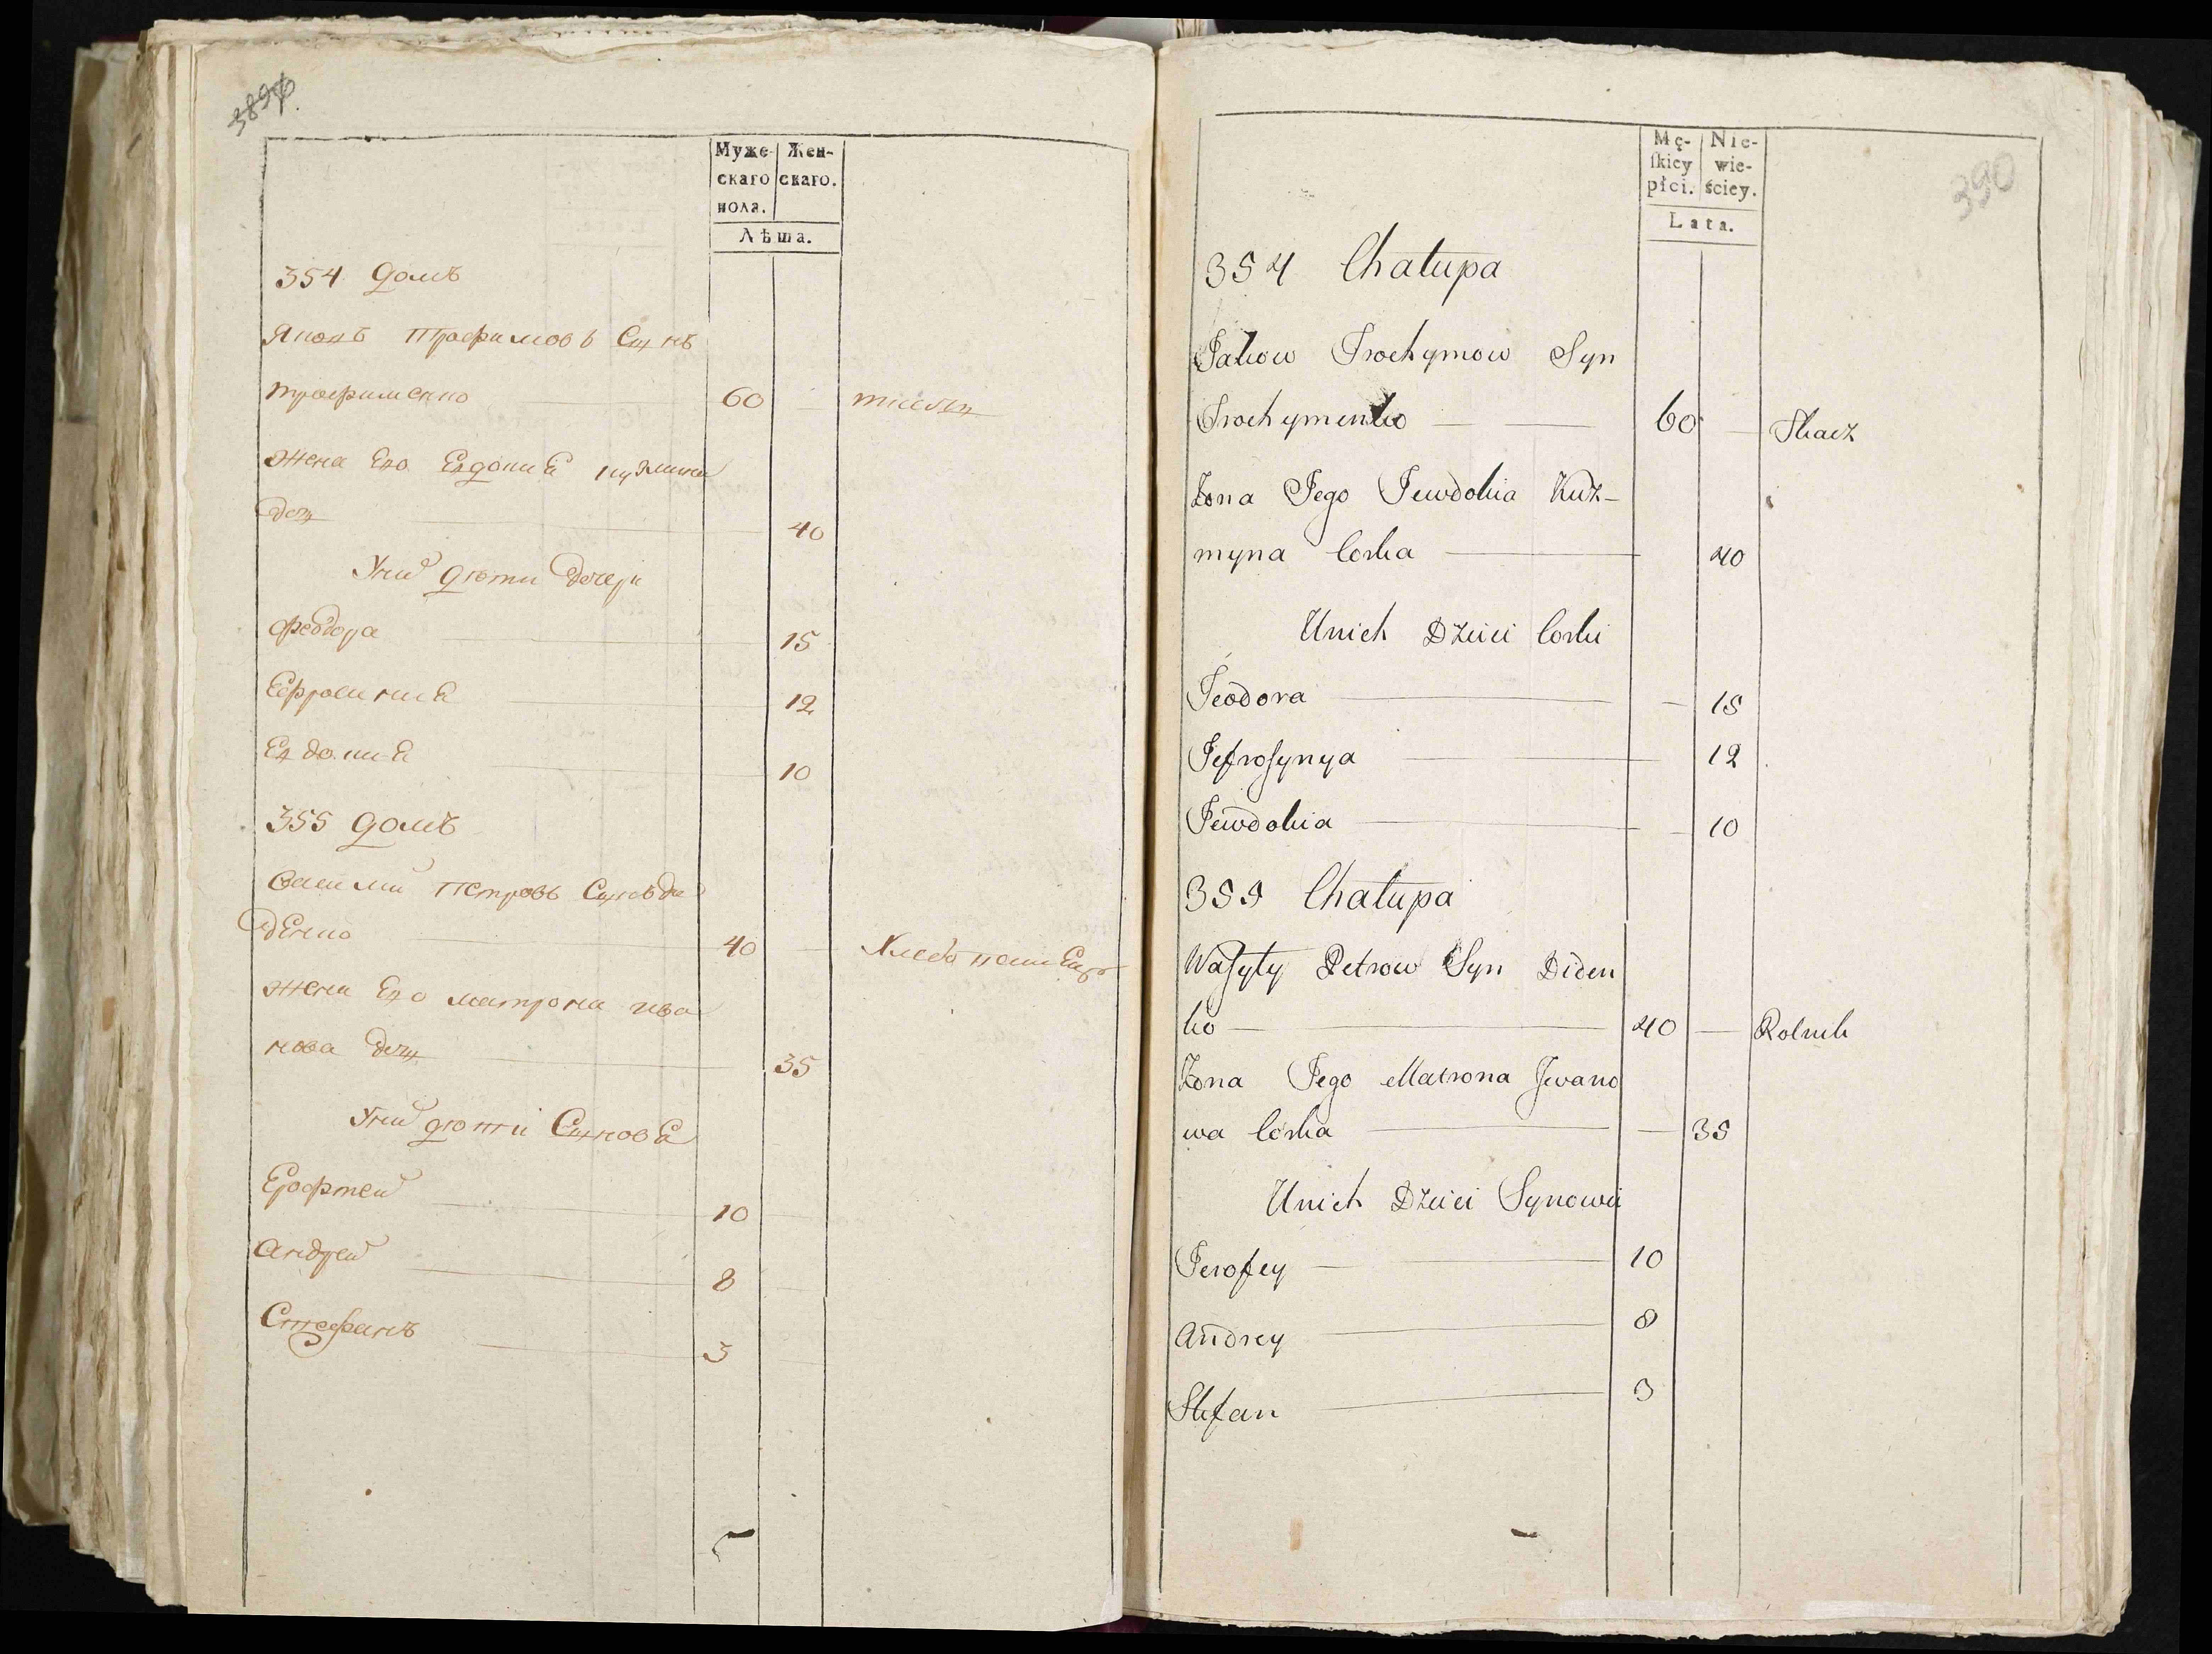 Муже-
скаго
пола.
Жен-
скаго.
Лѣта.
354 домъ
Яковъ Трофимовъ Сынъ
Трофименко 60
жена Его Евдокия кузмина
дочь 40
У них дѣти дочери
Феодора 15
Ефросиния 12
Евдокия 10
355 домъ
Василий Петровъ Сынъ ди
денко 40 Хлебопашецъ
жена Его матрона ива
нова дочь 35
У них дѣти Сыновя
Ерофтей 10
Андрей 8
Стефанъ 3
390
Mę-
ſkiey
płci.
Nie-
wie-
ściey.
Lata.
354 Chałupa
Jakow Trochymow Syn
Trochymenko 60 Tkacz
Żona Jego Jewdokia Kuź-
myna Corka 40
Unich Dzieci Corki
Teodora 15
Jefroſynya 12
Jewdokia 10
355 Chałupa
Waſyly Petrow Syn Diden
ko 40 Rolnik
Żona Jego Matrona Jwano
wa Corka 35
Unich Dzieci Synowie
Jerofey 10
Andrey 8
Stefan 3